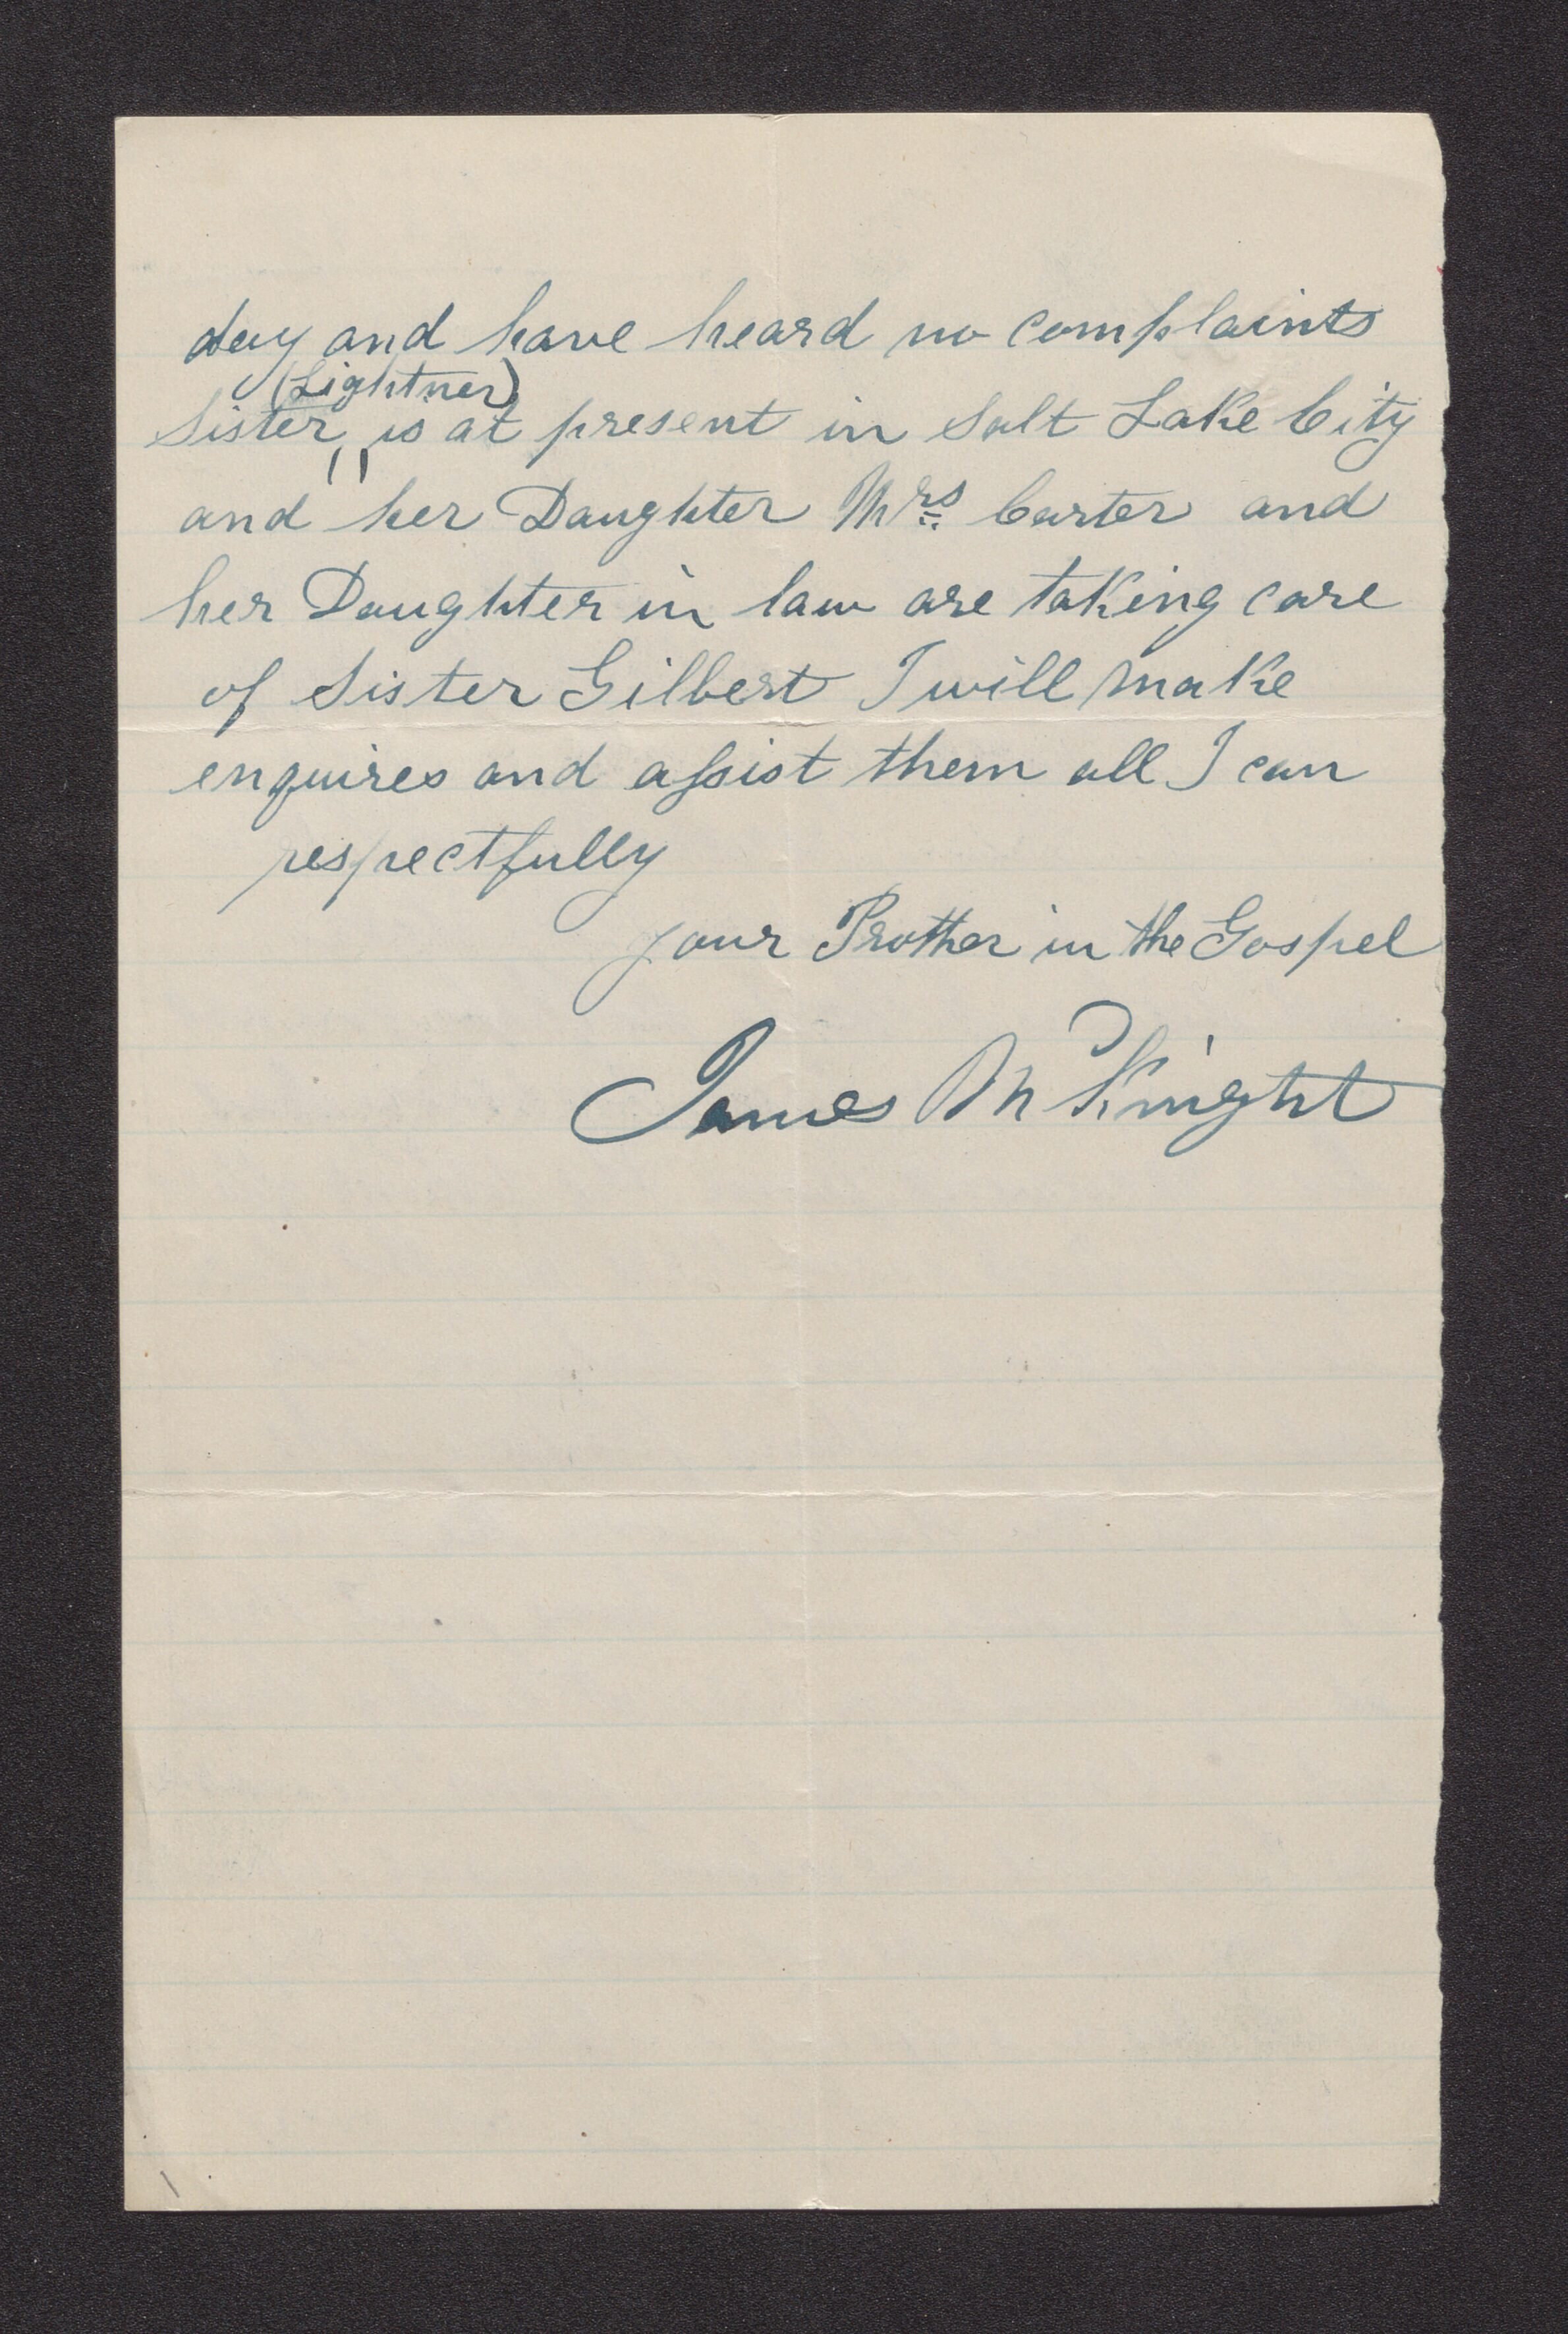 day and have heard no complaints
(Lightner)
Sister is at present in Salt Lake City
and her Daughter Mrs Carter and
her Daughter in law are taking care
of Sister Gilbert I will make
enquires and assist them all I can
respectfully
your Brother in the Gospel
James McKnight